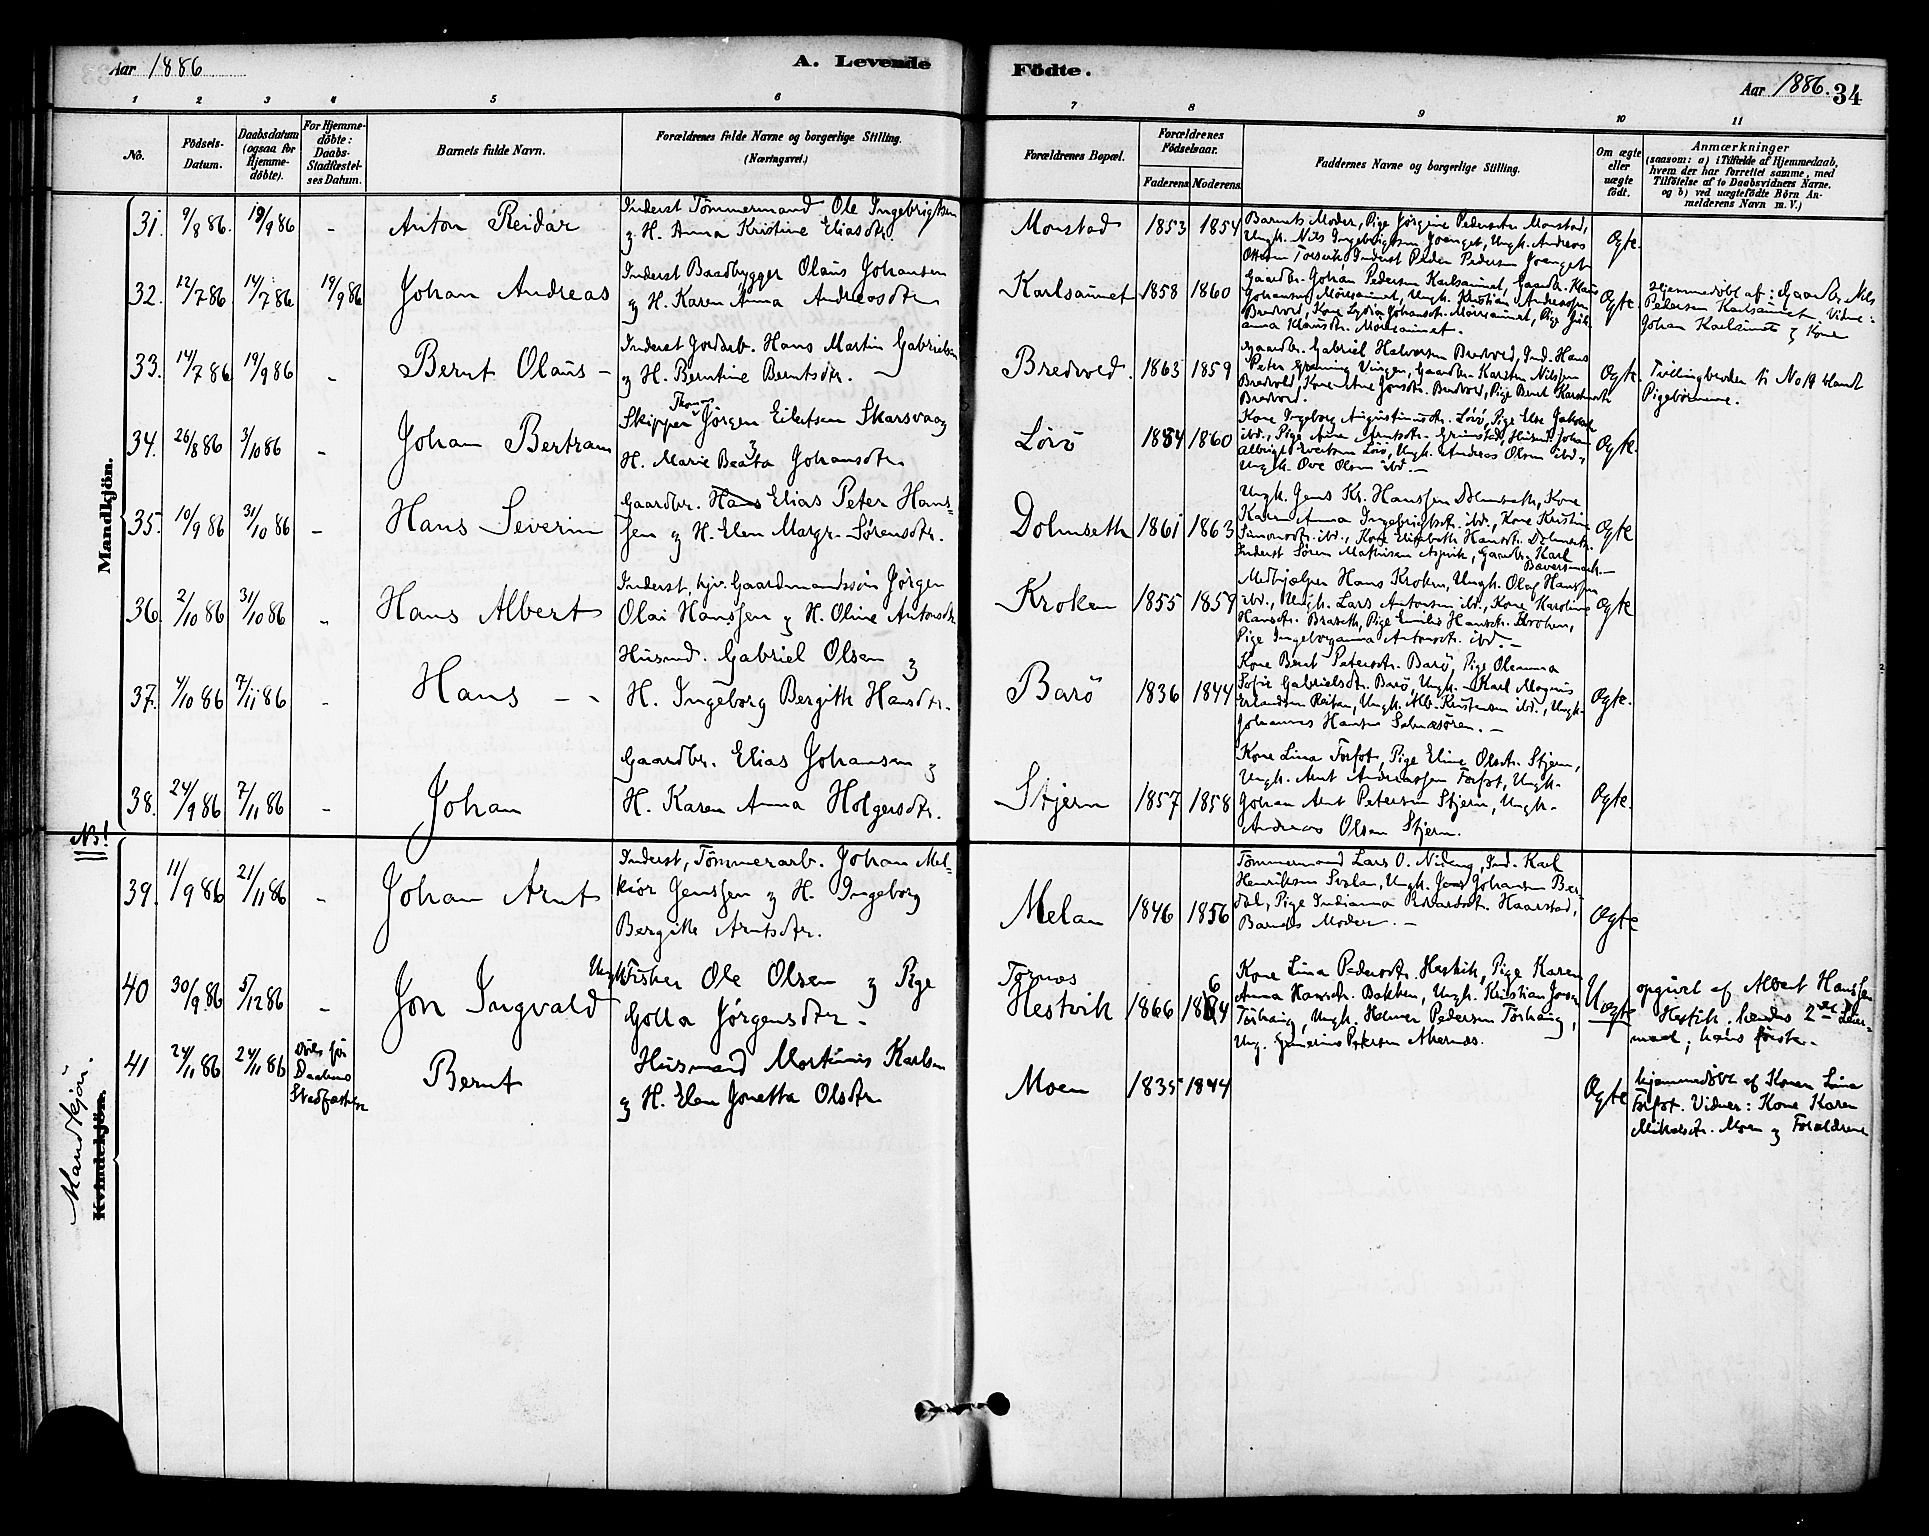 Aar 1886
A. Levende
Födte.
Aar 1886.
34
1 2 3 4 5 6 7 8 9 10 11
No.
Födsels-
Datum.
Daabsdatum
(ogsaa for
Hjemme-
döbte).
For Hjemme-
döbte:
Daabs-
Stadfæstel-
ses Datum.
Barnets fulde Navn.
Forældrenes fulde Navne og borgerlige Stilling.
(Næringsvei.)
Forældrenes Bopæl.
Forældrenes
Födselsaar.
Faderens Moderens
Faddernes Navne og borgerlige Stilling.
Om ægte
eller
uægte
födt.
Anmærkninger
(saasom: a) i Tilfælde af Hjemmedaab,
hvem der har forrettet samme, med
Tilföielse af to Daabsvidners Navne.
og b) ved uægtefödte Börn An-
melderens Navn m.V.)
Mandkjön.
31. 9/8 86. 19/9 86 - Anton Reidar
Inderst Tömmermand Ole Ingebrigtsen
& H. Anna Kristine Eliasdtr.
Monstad 1853 1854
Barnets Moder, Pige Jørgine Pedersdtr. Monstad,
Ungk. Nils Ingebrigtsen Joenget, Ungk. Andreas
Inderst Peder Pedersen Joenget
Ægte.
32. 12/7 86. 14/7 86 19/9 86 Johan Andreas
Inderst Baadbygger Olaus Johansen
& H. Karen Anna Andreasdtr
Karlsaunet 1858 1860
Gaardbr. Johan Pedersen Karlsaunet, Gaardb. Klaus
Johansen Morrsaunet, Ungk. Kristian Andreassen
Bredvold, Kone Lydia Johansdt. Morrsaunet, Pige Juli-
anna Klausdtr. Morrsaunet.
Ægte
Hjemmedöbt af: Gaardbr. Nils
Petersen Karlsaunet. Vidne:
Johan Karlsaunet & Kone
33. 14/7 86. 19/9 86 - Bernt Olaus -
Inderst Jordarb. Hans Martin Gabrielsen
& H. Berntine Berntsdtr. -
Bredvold. 1863 1859
Gaardbr. Gabriel Halvorsen Bredvold, Ind. Hans
Peter Grönning Vingen, Gaardbr. Karsten Nilssen
Bredvold, Kone Ane Jonsdtr. Bredvold, Pige Berit Karstensdt.
Bredvold.
Ægte.
Tvillingbroder til No 19 blandt
Pigebörnene.
34. 26/8 86 3/10 86 - Johan Bertram
Thomas
Skipper Jörgen Eilertsen Skarsvaag
&
H. Marie Beata Johansdtr.
Lörö 1884 1860
Kone Ingeborg Augustinusdt. Lörö, Pige Else Jakobsd
ibd., Pige Anne Arntsdtr. Grimstad, Husmd. Johan
Albrigt Evertsen Lörö, Ungk. Andreas Olsen ibd.,
Ungk. Ove Olsen ibd. -
Ægte.
35. 10/9 86 31/10 86 - Hans Severin
Gaardbr. Hans Elias Peter Hans-
sen & H. Elen Margr. Sörensdtr.
Dolmseth 1861 1863
Ungk. Jens Kr. Hanssen Dolmseth, Kone
Karen Anna Ingebrigtsdt. ibd., Kone Kristine
Simonsdtr. ibd., Kone Elisabeth Hansdt. Dolmseth.
Inderst Sören Mathisen Aspvik, Gaardbr. Karl
Bæversmark. -
Ægte
36. 2/10 86 31/10 86 - Hans Albert
Inderst, hjv. Gaardmandssön Jörgen
Olai Hanssen & H. Oline Antonsdtr
Kroken 1855 1859
Medhjælper Hans Kroken, Ungk. Olaf Hanssen
ibd., Ungk. Lars Antonsen ibd., Kone Karoline
Hansdtr. Braseth, Pige Emilie Hansdtr. Kroken,
Pige Ingeboranna Antonsdt. ibd. -
Ægte
37. 4/10 86 7/11 86 - Hans - -
Husmd. Gabriel Olsen &
H. Ingeborg Bergith Hansdtr.
Barö 1836 1844
Kone Berit Petersdtr. Barö, Pige Oleanna
Sofie Gabrielsdt. Barö, Ungk. Karl Magnus
Erlandsen Reitan, Ungk. Alb. Kristensen ibd., Ungk.
Johannes Hansen Salnæsören. -
Ægte.
38. 24/9 86 7/11 86 - Johan
Gaardbr. Elias Johansen &
H. Karen Anna Holgersdtr.
Stjern 1857 1858
Kone Lina Forfot, Pige Eline Olsdtr. Stjern,
Ungk. Arnt Andreassen Forfot, Ungk.
Johan Arnt Petersen Stjern, Ungk.
Andreas Olsen Stjern.
Ægte.
NB!
Mandkjön.
Kvindekjön.
39. 11/9 86 21/11 86 - Johan Arnt
Inderst, Tömmerarb. Johan Mel-
kior Jenssen & H. Ingeborg
Bergitte Arntsdtr.
Melan 1846 1856
Tömmermand Lars O. Nideng, Ind. Karl
Henriksen Svolan, Ungk. Jens Johansen Ber-
dal, Pige Indianna Haarstad,
Barnets Moder. -
Ægte
40 30/9 86 5/12 86 - Jon Ingvald
Ungk. Fisker Ole Olsen & Pige
Golla Jörgensdtr. -
Tornæs
Hestvik 1866 1864
Kone Lina Pedersdtr. Hestvik, Pige Karen
Anna Hansdt. Bakken, Ungk. Kristian Joon
Törhaug, Ungk. Helmer Pedersen Törhaug,
Ung. Petersen
Uægte
opgivet af Albert Hanssen
Hestvik. hendes 2den Leier-
maal, hans første. -
41 24/11 86 24/11 86 Döde för
Daabens
Stadfæstelse
Bernt
Husmand Mortinus Karlsen
& H. Elen Jonetta Olsdtr
Moen 1835 1844
Ægte
hjemmedöbt af Konen Lina
Forfot. Vidner: Kone Karen
Mikalsdtr. Moen & Forældrene